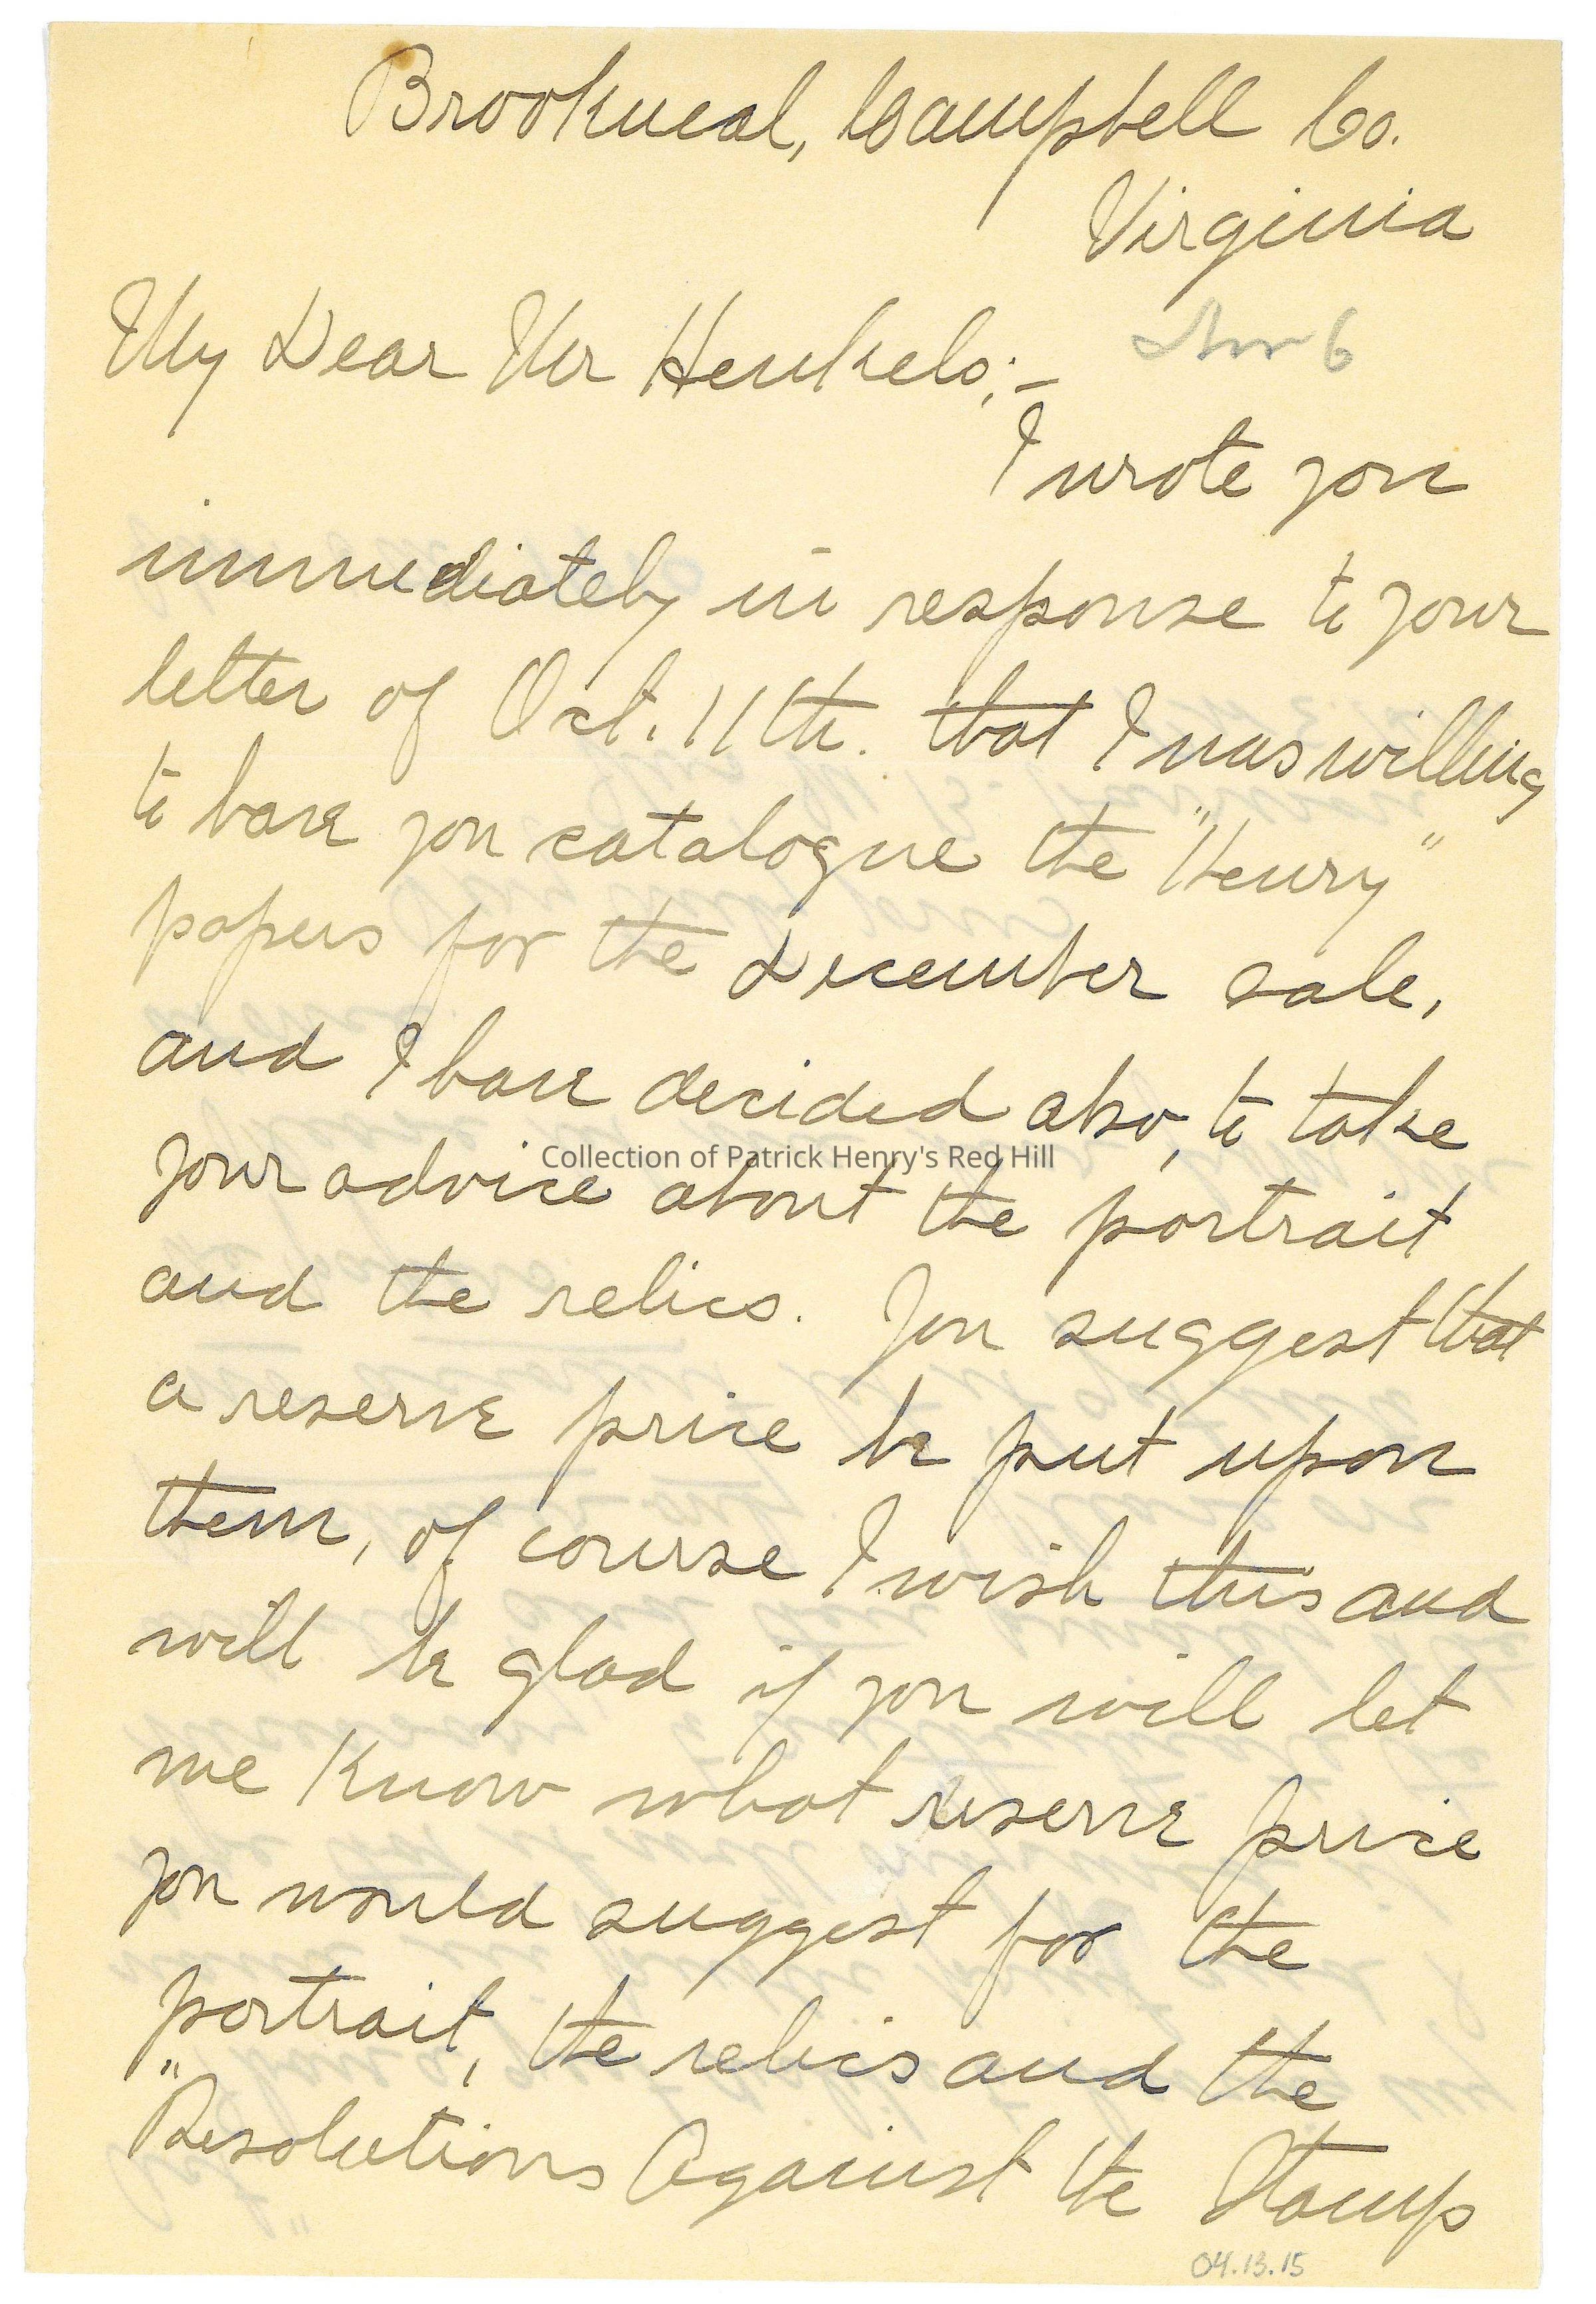 Brookneal, Campbell Co.
Virginia
My Dear Mr Henkels;–
I wrote you
immediately in response to your
letter of Oct. 11th. that I was willing
to have you catalogue the "Henry"
papers for the December sale,
and I have decided also, to take
your advice about the portrait
Collection of Patrick Henry's Red Hill
and the relics. You suggest that
a reserve price be put upon
them, of course I wish this and
will be glad if you will let
me know what reserve price
you would suggest for the
portrait, the relics and the
"Resolutions Against the Stamp
04.13.15